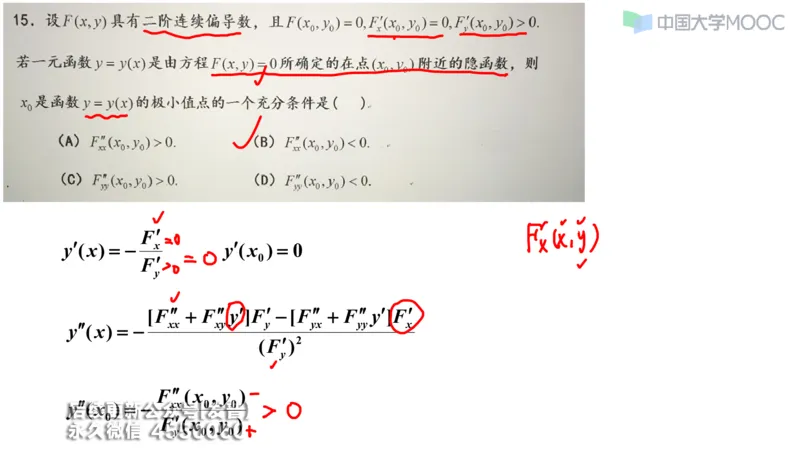 中国大学MOOC
15. 设F(x,y)具有二阶连续偏导数，且F(x₀,y₀)=0,F′ₓ(x₀,y₀)=0,F′ᵧ(x₀,y₀)>0.
若一元函数y=y(x)是由方程F(x,y)=0所确定的在点(x₀,y₀)附近的隐函数，则
x₀是函数y=y(x)的极小值点的一个充分条件是( ).
(A) F″ₓₓ(x₀,y₀)>0. (B) F″ₓₓ(x₀,y₀)<0.
(C) F″ᵧᵧ(x₀,y₀)>0. (D) F″ᵧᵧ(x₀,y₀)<0.
y′(x)=−F′ₓ/F′ᵧ =0 >0 =0 y′(x₀)=0
Fₓ(x,y)
y″(x)=−([F″ₓₓ+F″ₓᵧy′]F′ᵧ−[F″ᵧₓ+F″ᵧᵧy′]F′ₓ)/(F′ᵧ)²
y″(x₀)=−F″ₓₓ(x₀,y₀)/F′ᵧ(x₀,y₀) − + >0
永久微信